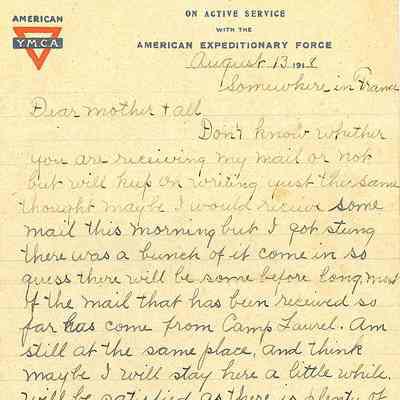 AMERICAN
Y.M.C.A.
ON ACTIVE SERVICE
WITH THE
AMERICAN EXPEDITIONARY FORCE
August 13 1918
Somewhere in France
Dear mother & all
Don't know whether
you are receiving my mail or not
but will keep on writing just the same
thought maybe I would receive some
mail this morning but I got stung
there was a bunch of it come in so
guess there will be some before long. most
of the mail that has been received so
far has come from Camp Laurel. Am
still at the same place, and think
maybe I will stay here a little while.
Will be satisfied as there is plenty of